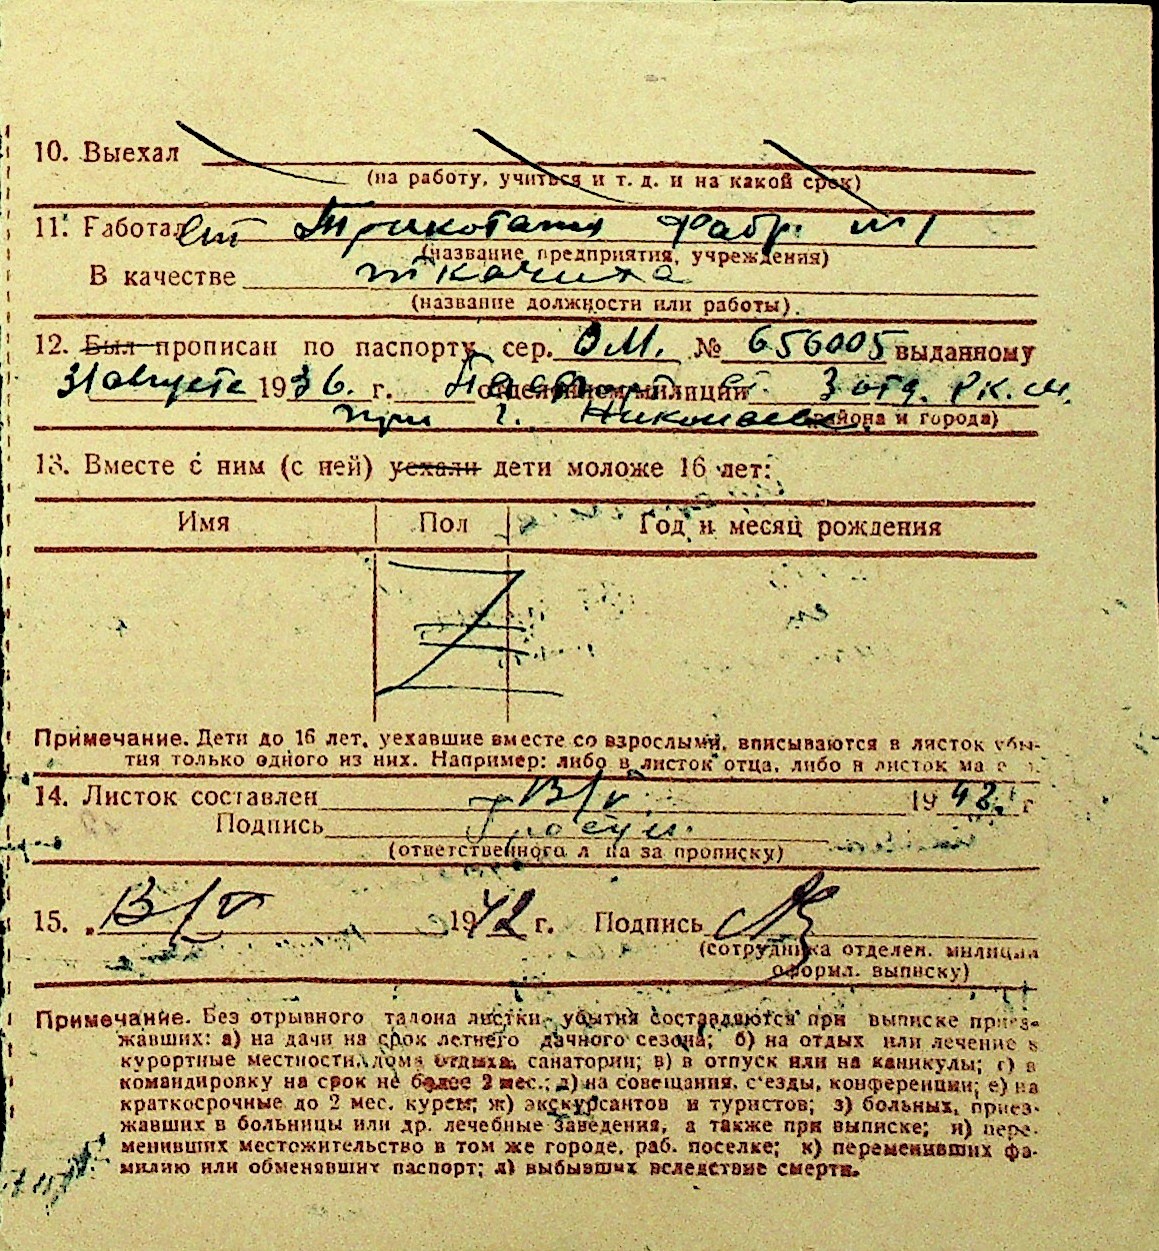 10. Выехал
(на работу, учиться и т. д. и на какой срок)
11. Работал Трикотажн фабр. №1
(название предприятия, учреждения)
В качестве ткачиха
(название должности или работы)
12. Был прописан по паспорту сер. ОМ. № 656005 выданному
31 августа 1936. г. отделением милиции 3 отд. Р.К.М.
при г. Николаев района и города)
13. Вместе с ним (с ней) уехали дети моложе 16 лет:
Имя Пол Год и месяц рождения
Примечание. Дети до 16 лет, уехавшие вместе со взрослыми, вписываются в листок убы-
тия только одного из них. Например: либо в листок отца, либо в листок ма
14. Листок составлен 13/V 1942. г
Подпись
(ответственного л ца за прописку)
15. „13/V 1942 г. Подпись
(сотрудника отделен. милиции
оформл. выписку)
Примечание. Без отрывного талона листки убытия составляются при выписке приез-
жавших: а) на дачи на срок летнего дачного сезона; б) на отдых или лечение в
курортные местности, дома отдыха, санатории; в) в отпуск или на каникулы; г) в
командировку на срок не более 2 мес.; д) на совещания, с'езды, конференции; е) на
краткосрочные до 2 мес. курсы; ж) экскурсантов и туристов; з) больных, приез-
жавших в больницы или др. лечебные заведения, а также при выписке; и) пере-
менивших местожительство в том же городе, раб. поселке; к) переменивших фа-
милию или обменявших паспорт; л) выбывших вследствие смерти.